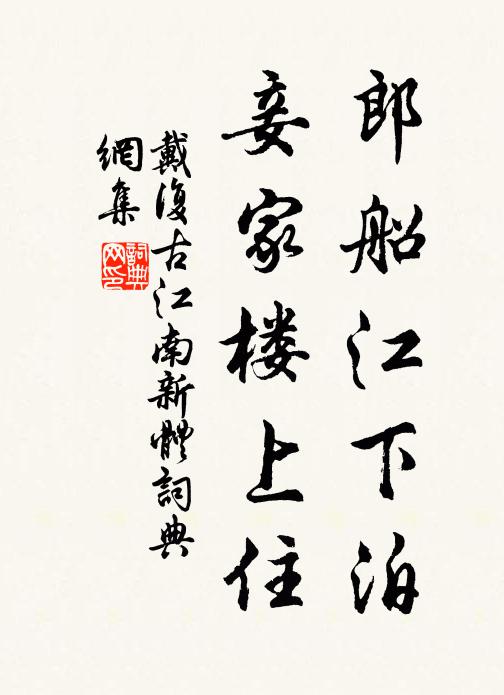 郎船江下泊
妾家楼上住
戴復古江南新體詞典
網集
詞典网印